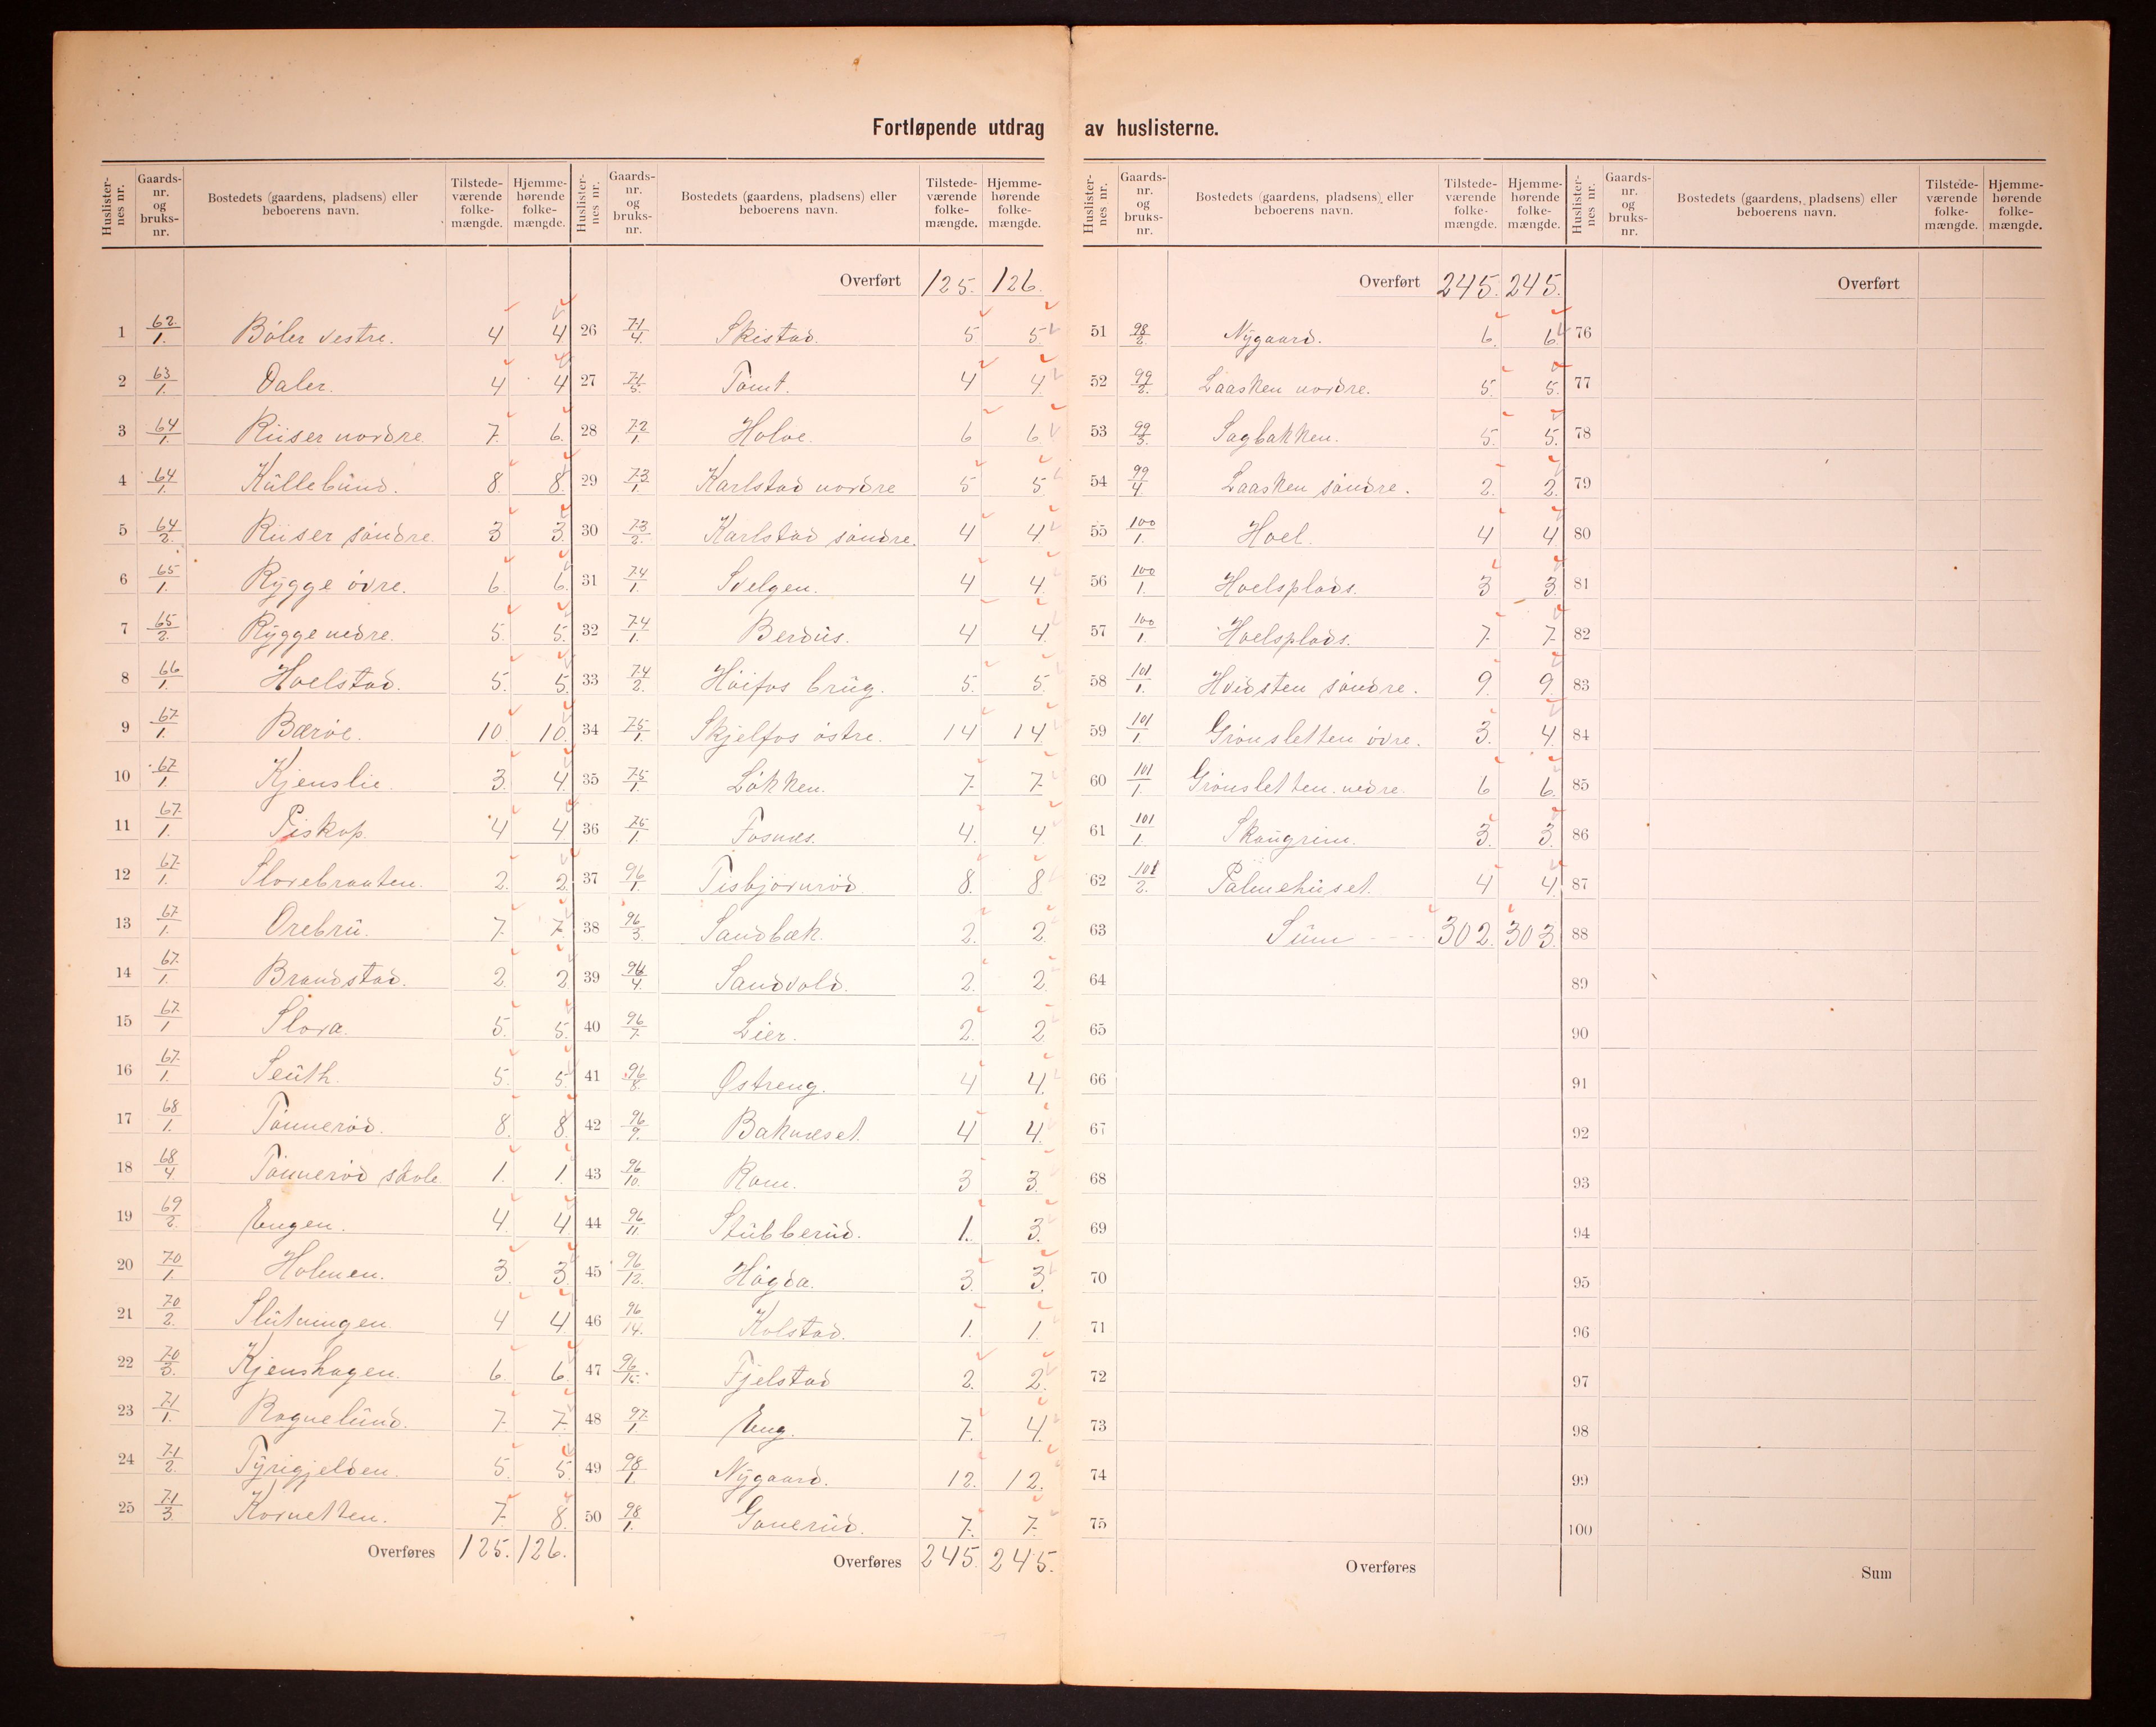 Fortløpende utdrag av huslisterne.
Huslister-nes nr. | Gaards-nr. og bruks-nr. | Bostedets (gaardens, pladsens) eller beboerens navn. | Tilstede-værende folke-mængde. | Hjemme-hørende folke-mængde.
1 62/1. Bøler vestre. 4 4
2 63/1. Daler. 4 4
3 64/1. Riiser nordre 7. 6.
4 64/1. Küllebünd. 8. 8.
5 64/2. Riiser søndre. 3 3.
6 65/1. Rygge øvre. 6. 6.
7 65/2. Rygge nedre. 5. 5.
8 66/1. Hoelstad. 5. 5.
9 67/1. Bærøe. 10. 10.
10 67/1. Kjenslie. 3. 4.
11 67/1. Piskop. 4 4
12 67/1. Slorebraaten. 2. 2.
13 67/1. Orebrü. 7. 7.
14 67/1. Brandstad. 2. 2
15 67/1 Slora. 5. 5.
16 67/1. Seüth. 5. 5.
17 68/1 Tønnerød. 8. 8.
18 68/4 Tønnerød skole 1. 1.
19 69/2. Engen. 4. 4
20 70/1. Holmen. 3. 3.
21 70/2. Slütningen. 4 4
22 70/3. Kjenshagen. 6. 6.
23 71/1. Rognelünd. 7. 7.
24 71/2. Tyrigjelden. 5. 5.
25 71/3. Kornetten. 7. 8.
Overføres 125. 126.
Huslister-nes nr. | Gaards-nr. og bruks-nr. | Bostedets (gaardens, pladsens) eller beboerens navn. | Tilstede-værende folke-mængde. | Hjemme-hørende folke-mængde.
Overført 125. 126.
26 71/4. Skistad. 5. 5.
27 71/5. Tomt. 4 4.
28 72/1 Holoe. 6 6.
29 73/1. Karlstad nordre 5 5.
30 73/2. Karlstad søndre. 4 4.
31 74/1. Svelgen. 4 4.
32 74/1. Berdüs. 4 4.
33 74/2. Høifos brüg. 5. 5.
34 75/1. Skjelfos østre. 14 14
35 75/1 Løkken. 7. 7.
36 75/1. Fosnæs. 4. 4.
37 96/1 Tisbjørnrød 8. 8.
38 96/3. Sandbæk. 2. 2.
39 96/4. Sandvold. 2. 2.
40 96/7. Lier. 2. 2
41 96/8. Østreng. 4 4.
42 96/9. Baknæset. 4 4.
43 96/10. Rom. 3 3.
44 96/11. Stübberüd. 1. 3.
45 96/12. Høgda. 3. 3.
46 96/14. Kolstad. 1. 1.
47 96/15. Fjelstad 2. 2.
48 97/1 Eng. 7. 4.
49 98/1. Nygaard. 12. 12.
50 98/1. Gonerüd. 7. 7.
Overføres 245. 245.
Huslister-nes nr. | Gaards-nr. og bruks-nr. | Bostedets (gaardens, pladsens) eller beboerens navn. | Tilstede-værende folke-mængde. | Hjemme-hørende folke-mængde.
Overført 245. 245.
51 98/2. Nygaard. 6. 6.
52 99/2. Laasken nordre. 5. 5.
53 99/3. Sagbakken. 5. 5.
54 99/4. Laasken søndre. 2. 2.
55 100/1. Hoel. 4 4
56 100/1. Hoelsplads. 3 3.
57 100/1 Hoelsplads. 7. 7.
58 101/1. Hvidsten søndre. 9. 9.
59 101/1. Grønsletten øvre. 3. 4.
60 101/1 Grønsletten nedre. 6 6.
61 101/1. Skaugrim. 3. 3.
62 101/2. Palmehüset. 4 4.
63 Süm 302. 303.
64
65
66
67
68
69
70
71
72
73
74
75
Overføres
Huslister-nes nr. | Gaards-nr. og bruks-nr. | Bostedets (gaardens, pladsens) eller beboerens navn. | Tilstede-værende folke-mængde. | Hjemme-hørende folke-mængde.
Overført
76
77
78
79
80
81
82
83
84
85
86
87
88
89
90
91
92
93
94
95
96
97
98
99
100
Sum